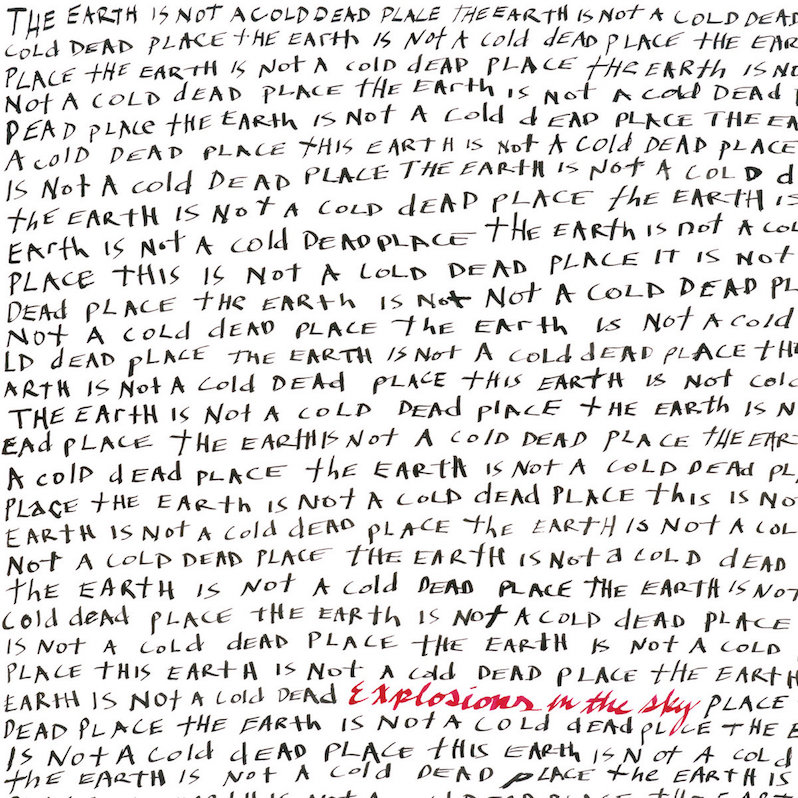 THE EARTH IS NOT A COLD DEAD PLACE THE EARTH IS NOT A COLD DEAD
COLD DEAD PLACE tHE EARth IS NOt A cold dEAd PLACE tHE EAR
PLACE tHE EARTH IS Not A cold dEAD PLACE tHE EARth IS NO
Not A COLD dEAD PLACE THE EARth is Not A cold DEAD
DEAD PLACE tHE EARth IS Not A Cold dEAD PLACE THE EA
A colD DEAD PLACE tHIS EARTH IS Not A Cold DEAD PLACE
IS Not A cold DEAD PLACE THE EARTH IS Not A COLD d
tHE EARTH IS NoT A COLD dEAD PLACE thE EARTH IS
EARth IS Not A cold DEAD PLACE tHE EARth IS not A col
PLACE tHIS IS Not A COLD DEAD PLACE IT IS Not
DEAd PLACE tHE EARth IS Not Not A COLD DEAD PL
Not A COLd dEAD PLACE The EARth is Not A cold
LD dEAD pLACE THE EARTH IS Not A cold dEAD pLACE tH
ARTH IS Not A cold DEAd PLACE tHIS EARTH IS Not colc
THE EARtH IS Not A COLD DEAd plACE tHE EARth IS N
EAd pLACE tHE EARtH IS Not A colD DEAD PLACE tHE EAR
A colD dEAD PLACE thE EARTH IS Not A COLD DEAd pL
PLACE tHE EARth IS Not A COLD dEAd PLACE this IS No
EARTH IS Not A cold dEAD pLACE thE EARTH IS Not A COL
Not A COLD DEAD PLACE THE EARtH IS Not a COLD dEAD
thE EARTH IS Not A cold DEAD PLACE THE EARtH IS NoT
cold dead PLACE tHE EARth IS Not A COLD dEAD PLACE
IS Not A cold dEAD PLACE tHE EARTH IS Not A COLD
PLACE THIS EARTH IS Not A cold DEAD PLACE tHE EARTH
EARTH IS Not A cold DEAD Explosions in the sky PLACE
DEAD PLACE tHE EARth IS Not A COLD dEAd plACE THE E
IS Not A Cold dEAD PLACE tHIS EARtH IS Not A cold
the EARtH IS Not A Cold DEAD pLACE the EARtH IS